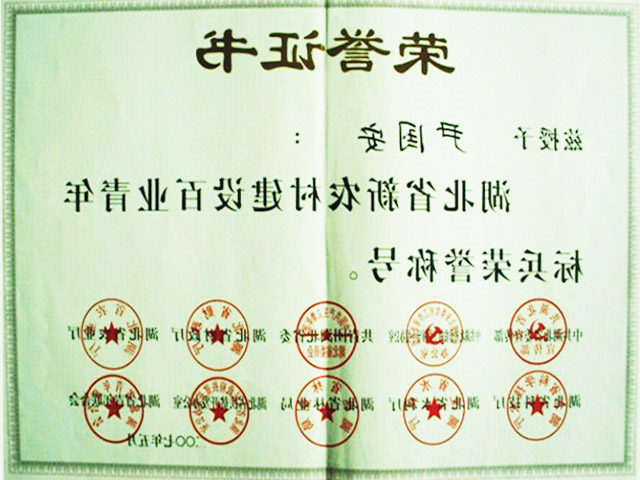 荣誉证书
兹授予 尹国安 :
湖北省新农村建设百业青年
标兵荣誉称号。
湖北省农业厅 湖北省财政厅 共青团湖北省委
湖北省青年联合会 湖北省林业局 湖北省水利厅 湖北省科技厅
二〇〇七年五月